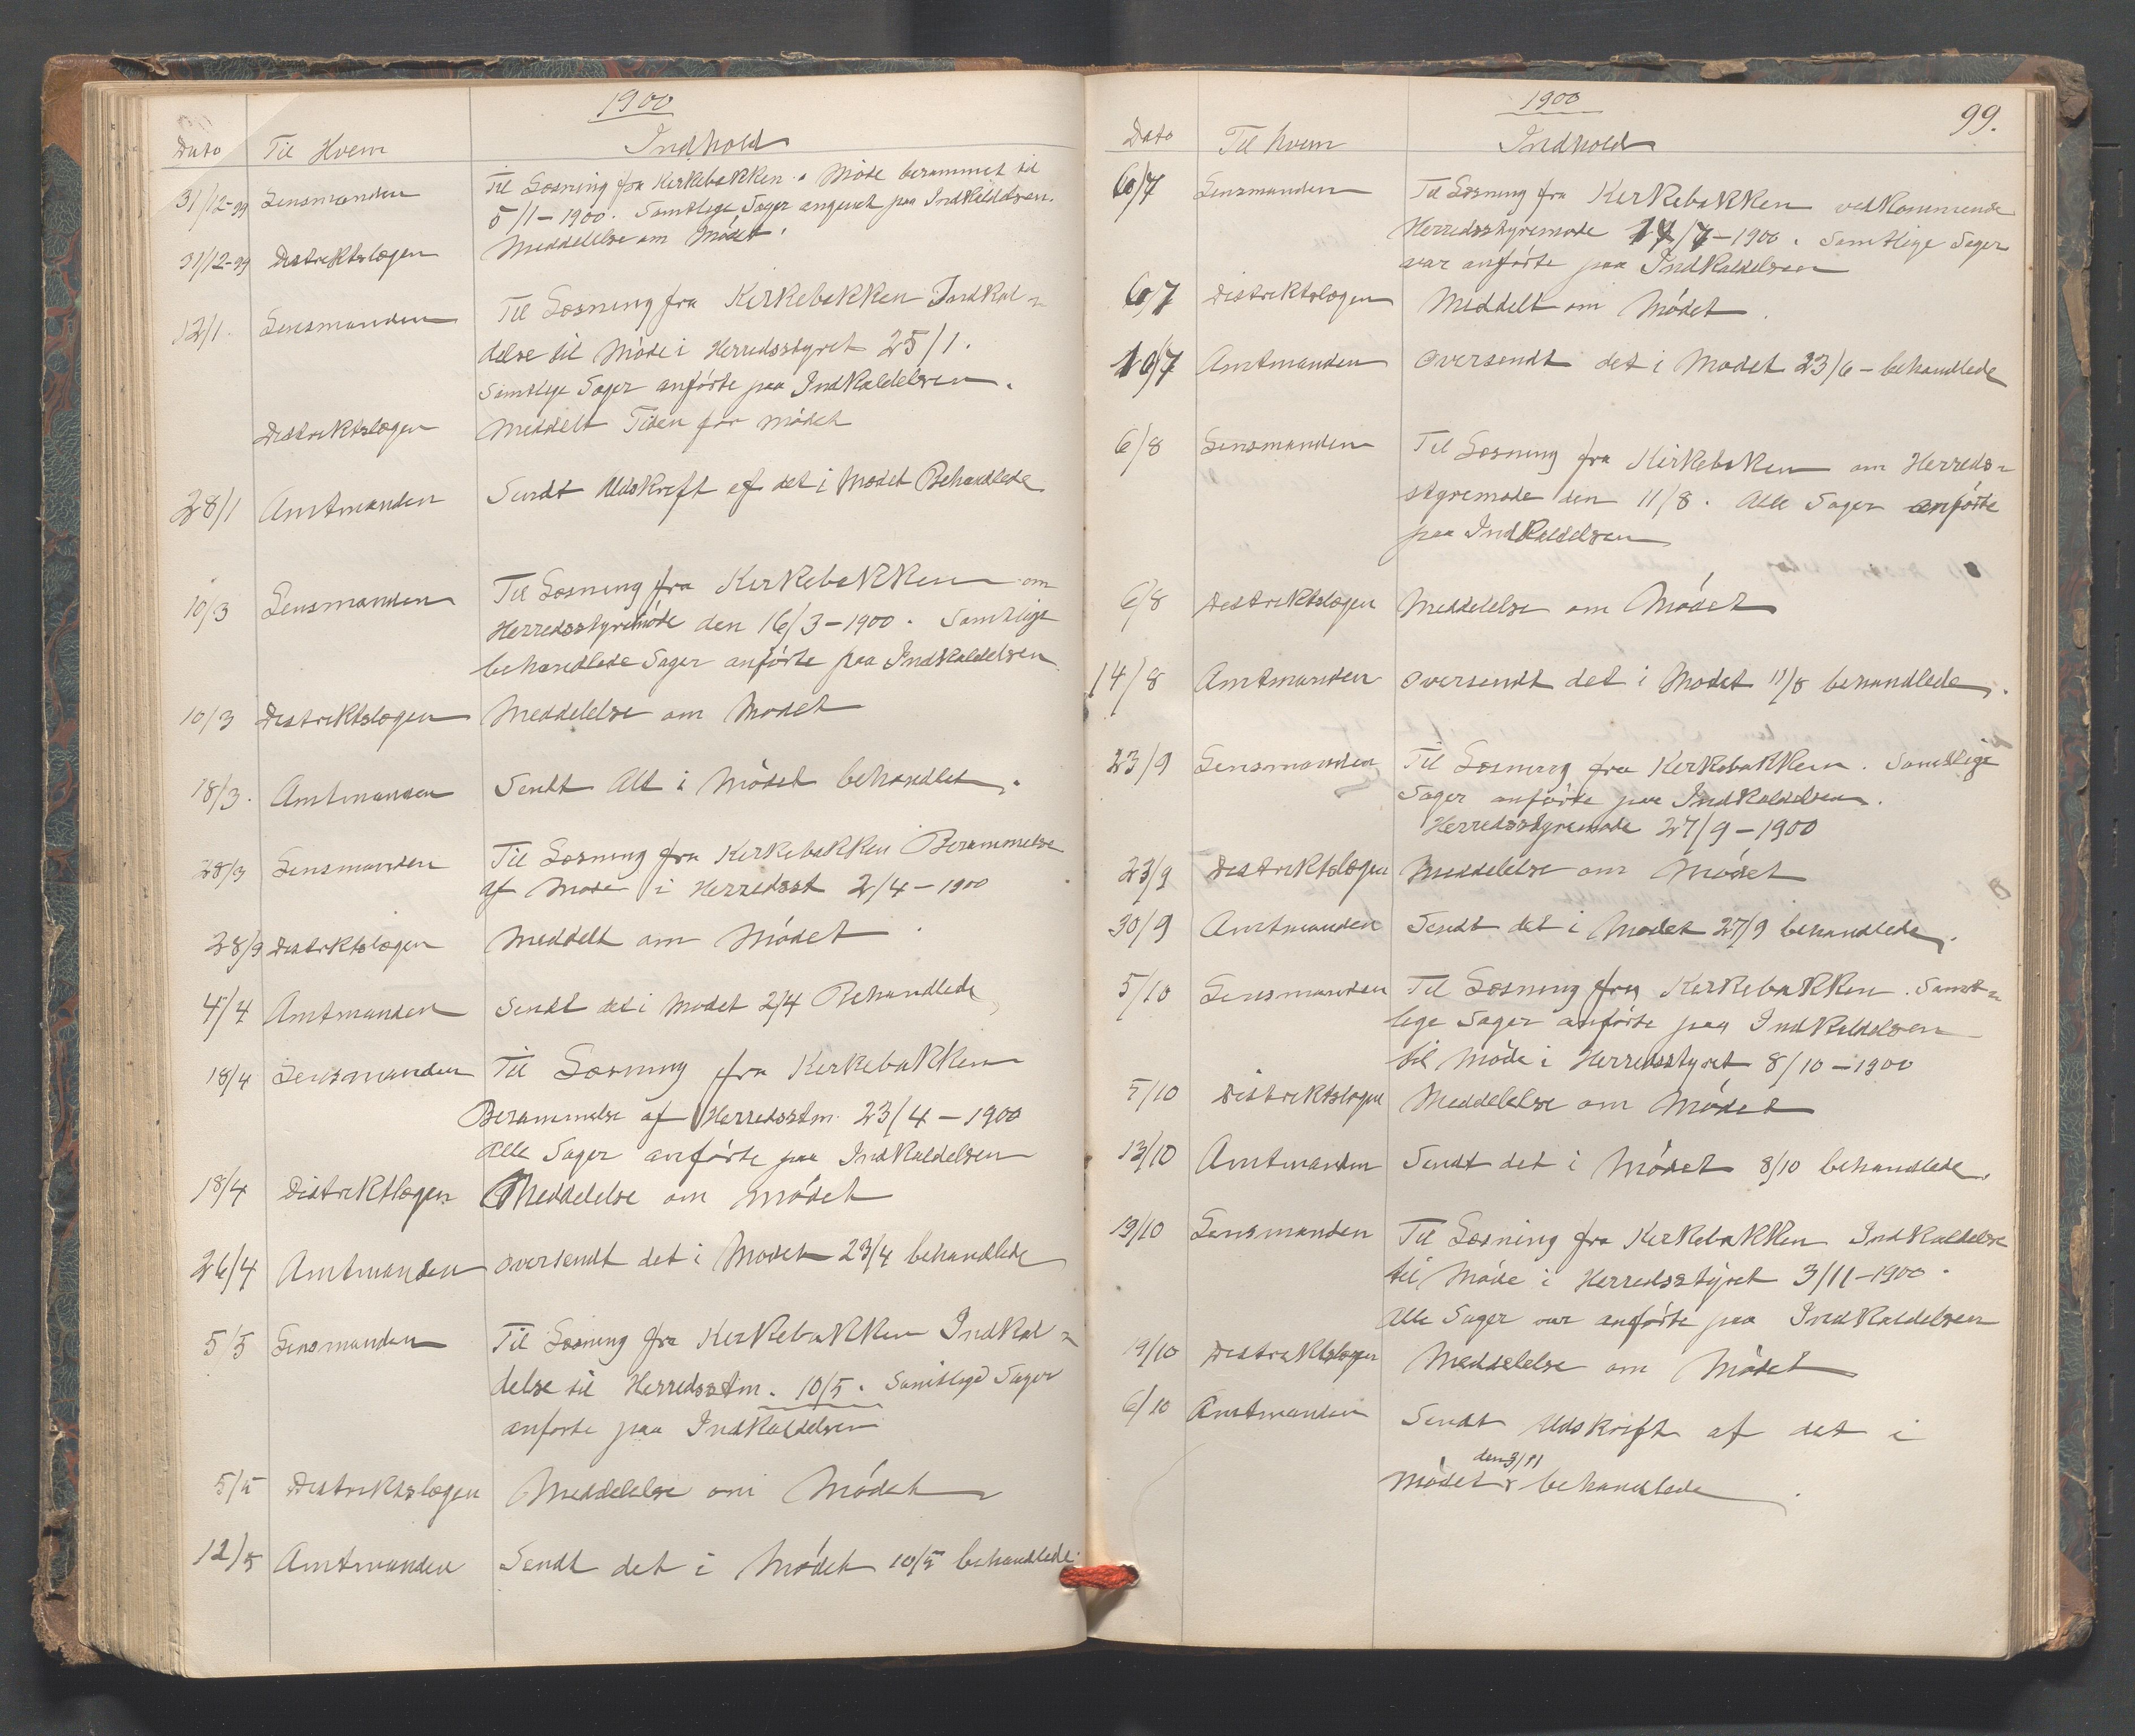 1900
Dato Til Hvem Indhold
31/12-99 Lensmanden Til Læsning fra Kirkebakken. Møde berammet til
5/1-1900. Samtlige Sager angivet paa Indkaldelsen.
31/12-99 Distriktslægen Meddelelse om Mødet.
12/1. Lensmanden Til Læsning fra Kirkebakken Indkal-
delse til Møde i Herredsstyret 25/1.
Samtlige Sager anførte paa Indkaldelsen.
Distriktslægen Meddelt Tiden for mødet
28/1 Amtmanden Sendt Udskrift af det i Mødet Behandlede
10/3 Lensmanden Til Læsning fra Kirkebakken om
Herredsstyremøde den 16/3-1900. Samtlige
behandlede Sager anførte paa Indkaldelsen.
10/3 Distriktslægen Meddelelse om Mødet
18/3. Amtmanden Sendt Alt i Mødet behandlet.
28/3 Lensmanden Til Læsning fra Kirkebakken Berammelse
af Møde i Herredsst 2/4-1900
28/3 Distriktslægen Meddelt om Mødet
4/4 Amtmanden Sendt det i Mødet 2/4 Behandlede
18/4 Lensmanden Til Læsning fra Kirkebakken
Berammelse af Herredsstm. 23/4-1900
Alle Sager anførte paa Indkaldelsen
18/4 Distriktlægen Meddelelse om mødet
26/4 Amtmanden Oversendt det i Mødet 23/4 behandlede
5/5 Lensmanden Til Læsning fra Kirkebakken Indkal-
delse til Herredsstm. 10/5. Samtlige Sager
anførte paa Indkaldelsen
5/5 Distriktslægen Meddelelse om Mødet
12/5 Amtmanden Sendt det i Mødet 10/5 behandlede.
1900
99.
Dato Til hvem Indhold
6/7 Lensmanden Til Læsning fra Kirkebakken vedkommende
Herredsstyremøde /7-1900. Samtlige Sager
var anførte paa Indkaldelsen
6/7 Distriktslægen Meddelt om Mødet.
10/7 Amtmanden Oversendt det i Mødet 23/6-behandlede
6/8 Lensmanden Til Læsning fra Kirkebakken om Herreds-
styremøde den 11/8. Alle Sager anførte
paa Indkaldelsen
6/8 Distriktslægen Meddelelse om Mødet
14/8 Amtmanden Oversendt det i Mødet 11/8 behandlede.
23/9 Lensmanden Til Læsning fra Kirkebakken. Samtlige
Sager anførte paa Indkaldelsen.
Herredsstyremøde 27/9-1900
23/9 Distriktslægen Meddelelse om Mødet
30/9 Amtmanden Sendt det i Mødet 27/9 behandlede.
5/10 Lensmanden Til Læsning fra Kirkebakken. Samt-
lige Sager anførte paa Indkaldelsen
til Møde i Herredsstyret 8/10-1900
5/10 Distriktslægen Meddelelse om Mødet
13/10 Amtmanden Sendt det i Mødet 8/10 behandlede.
19/10 Lensmanden Til Læsning fra Kirkebakken Indkaldelse
til Møde i Herredsstyret 3/11-1900.
Alle Sager var anførte paa Indkaldelsen
19/10 Distriktslægen Meddelelse om Mødet
6/10 Amtmanden Sendt Udskrift af det i
den 3/11
Mødet behandlede.